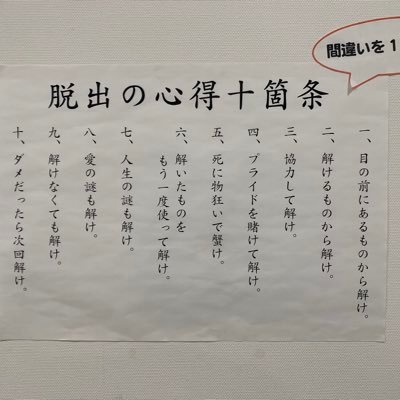 間違いを1
脱出の心得十箇条
一、目の前にあるものから解け。
二、解けるものから解け。
三、協力して解け。
四、プライドを賭けて解け。
五、死に物狂いで蟹け。
六、解いたものを
もう一度使って解け。
七、人生の謎も解け。
八、愛の謎も解け。
九、解けなくても解け。
十、ダメだったら次回解け。